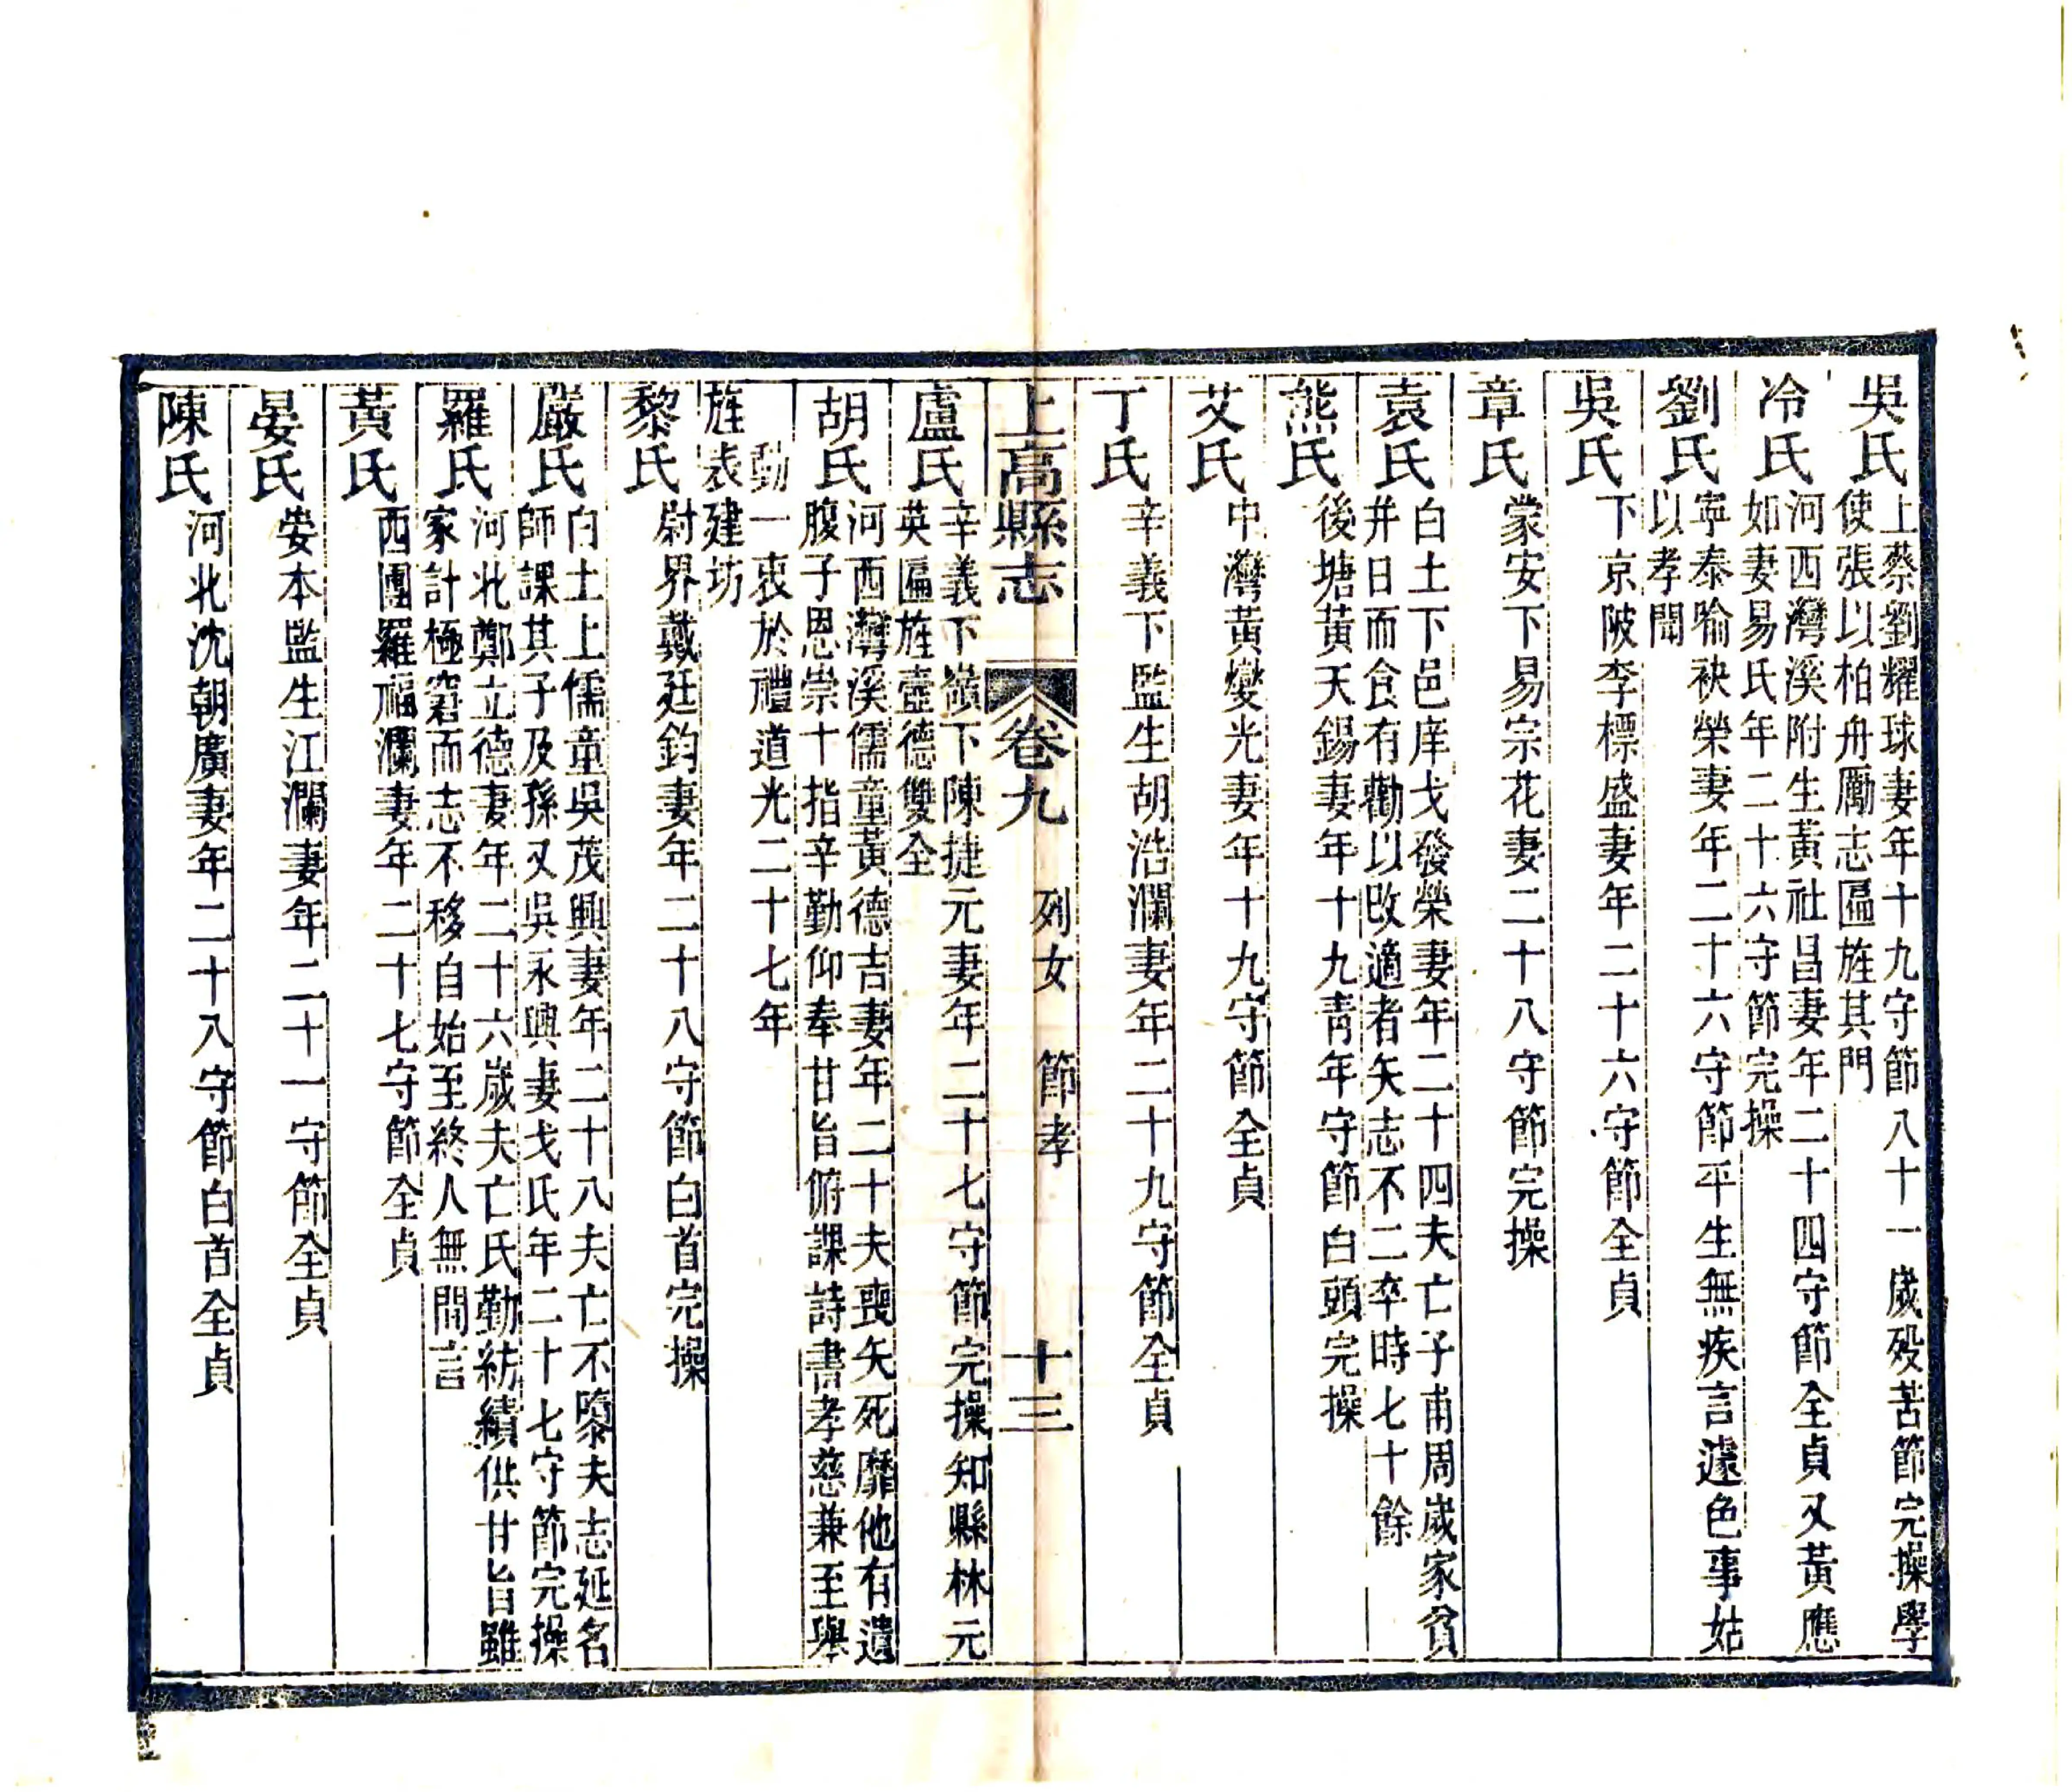 吳氏
上蔡劉耀球妻年十九守節八十一歲歿苦節完操學
使張以柏舟勵志匾旌其門
冷氏
河西灣溪附生黃社昌妻年二十四守節全貞又黃應
如妻易氏年二十六守節完操
劉氏
寧泰喻袂榮妻年二十六守節平生無疾言遽色事姑
以孝聞
吳氏
下京陂李標盛妻年二十六守節全貞
章氏
蒙安下易宗花妻二十八守節完操
袁氏
白土下邑庠戈發榮妻年二十四夫亡子甫周歲家貧
并日而食有勸以改適者矢志不二卒時七十餘
熊氏
後塘黃天錫妻年十九青年守節白頭完操
艾氏
中灣黃燮光妻年十九守節全貞
丁氏
辛義下監生胡浩瀾妻年二十九守節全貞
上高縣志 卷九 列女 節孝 十三
盧氏
辛義下嶺下陳捷元妻年二十七守節完操知縣林元
英匾旌壼德雙全
胡氏
河西灣溪儒童黃德吉妻年二十夫喪矢死靡他有遺
腹子恩崇十指辛勤仰奉甘旨俯課詩書孝慈兼至舉
動一衷於禮道光二十七年
旌表建坊
黎氏
尉界戴廷鈞妻年二十八守節白首完操
嚴氏
白土上儒童吳茂興妻年二十八夫亡不隳夫志延名
師課其子及孫又吳永興妻戈氏年二十七守節完操
羅氏
河北鄭立德妻年二十六歲夫亡氏勤紡績供甘旨雖
家計極窘而志不移自始至終人無間言
黃氏
西團羅福瀾妻年二十七守節全貞
晏氏
崇本監生江瀾妻年二十一守節全貞
陳氏
河北沈朝廣妻年二十八守節白首全貞